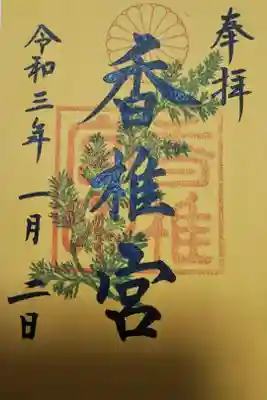 奉拝
香椎宮
令和三年 一月 二日